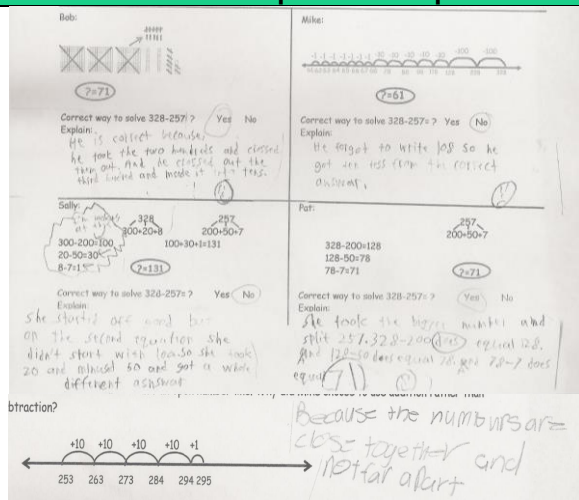 Bob:
?=71
Correct way to solve 328-257= ? Yes No
Explain:
He is correct because
he took the two hundreds and crossed
them out. And he crossed out the
third and made it into tens.
Mike:
-1 -1 -1 -1 -1 -1 -1 -10 -10 -10 -10 -10 -100 -100
?=61
Correct way to solve 328-257= ? Yes No
Explain:
He forgot to write 108 so he
got ten less from the correct
answer.
Sally:
328
300+20+8
257
200+50+7
300-200=100
20-50=30
8-7=1
100+30+1=131
?=131
Correct way to solve 328-257= ? Yes No
Explain:
She started off good but
on the second equation she
didn't start with she took
20 and minused 50 and got a whole
different answar
Pat:
257
200+50+7
328-200=128
128-50=78
78-7=71
?=71
Correct way to solve 328-257= ? Yes No
Explain:
She took the bigger number and
split 257. 328-200 does equal 128.
And 128-50 does equal 78. And 78-7 does
equal 71
btraction?
+10 +10 +10 +10 +1
253 263 273 284 294 295
Because the numburs are
close together and
not far apart